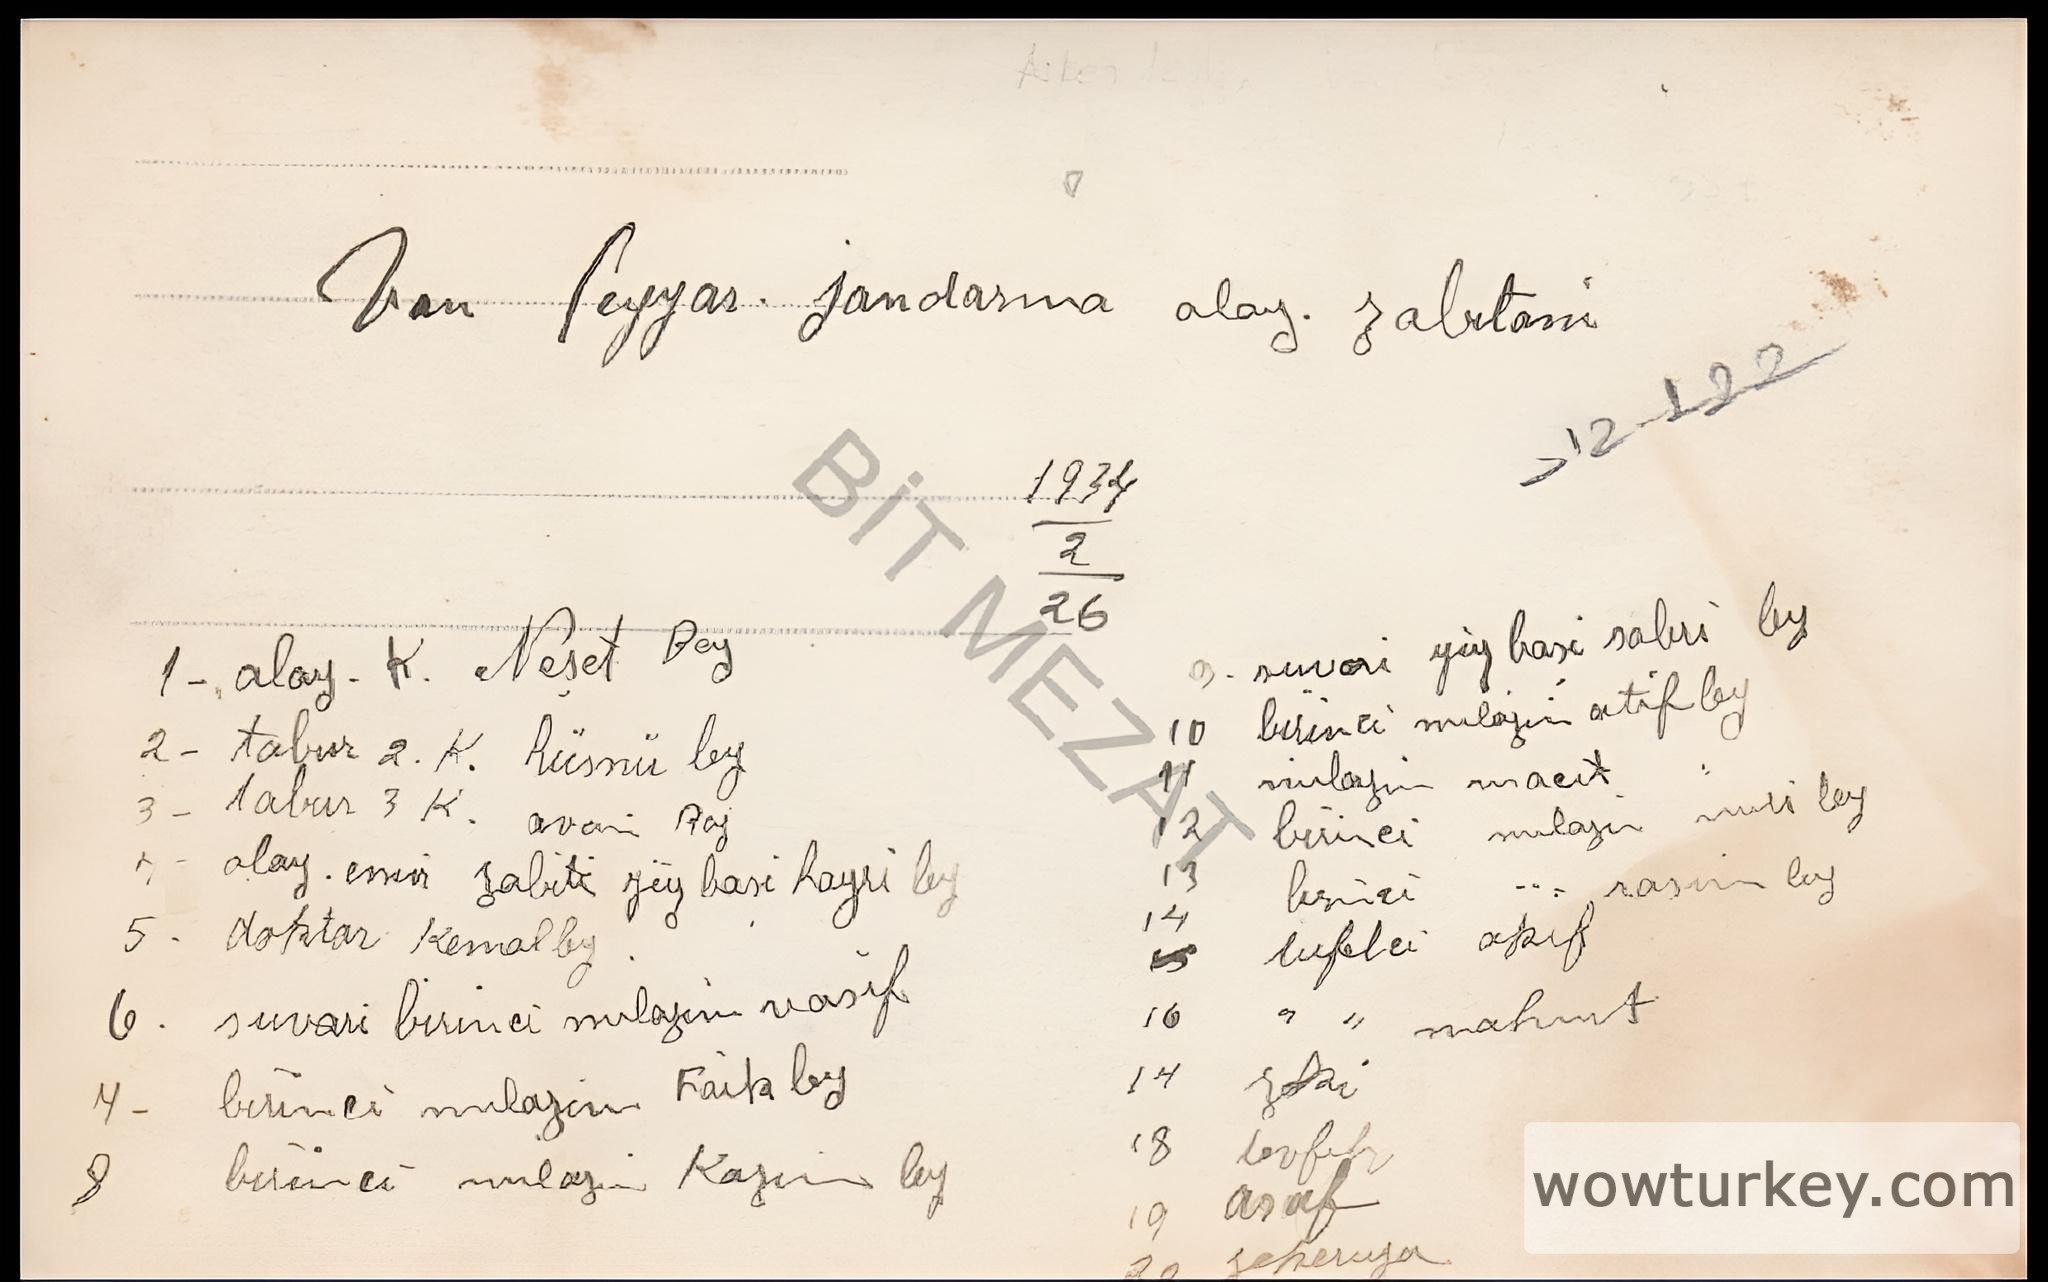 Van Seyyar. jandarma alay. zabitani
12-122
1934
2
26
1- alay. K. Neşet Bey
2- tabur 2. K. hüsnü bey
3- tabur 3 K. avni Bey
4- alay. emir zabiti yüz basi hayri bey
5. doktar Kemal bey.
6. suvari birinci mulazim vasif
7- birinci mulazim Faik bey
8 birinci mulazim Kazim bey
9. suvari yüz basi sabri bey
10 birinci mulazim atif bey
11 mulazim macit "
12 birinci mulazim nuri bey
13 birinci " " rasim bey
14
15 tufekci akif
16 " " mahmut
17 zeki
18 tevfik
19 asaf
20 zekeriya
BİT MEZAT
wowturkey.com